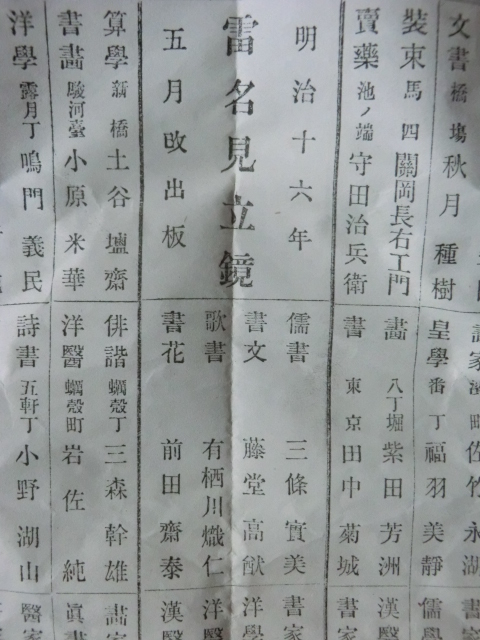 文書 橋場 秋月種樹
裝束 馬四 關岡長右工門
賣藥 池ノ端 守田治兵衛
明治十六年
雷名見立鏡
五月改出板
算學 新橋 土谷壚齋
書畵 駿河臺 小原米華
洋學 露月丁 鳴門義民
佐竹永湖
皇學 番丁 福羽美靜
畵 八丁堀 紫田芳洲
書 東京 田中菊城
儒書 三條實美
書文 藤堂高猷
歌書 有栖川熾仁
書花 前田齋泰
俳諧 蠣殼丁 三森幹雄
洋醫 蠣殼町 岩佐純
詩書 五軒丁 小野湖山
儒學
漢醫
書家
書家
洋學
洋醫
漢醫
畵家
眞書
醫家